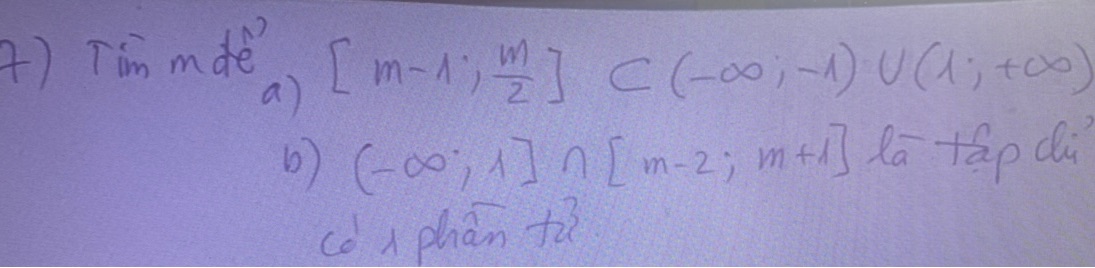 7) Tìm m để a) [m-1; m/2] ⊂ (-∞; -1) ∪ (1; +∞)
b) (-∞; 1] ∩ [m-2; m+1] là tập chỉ
có 1 phần tử